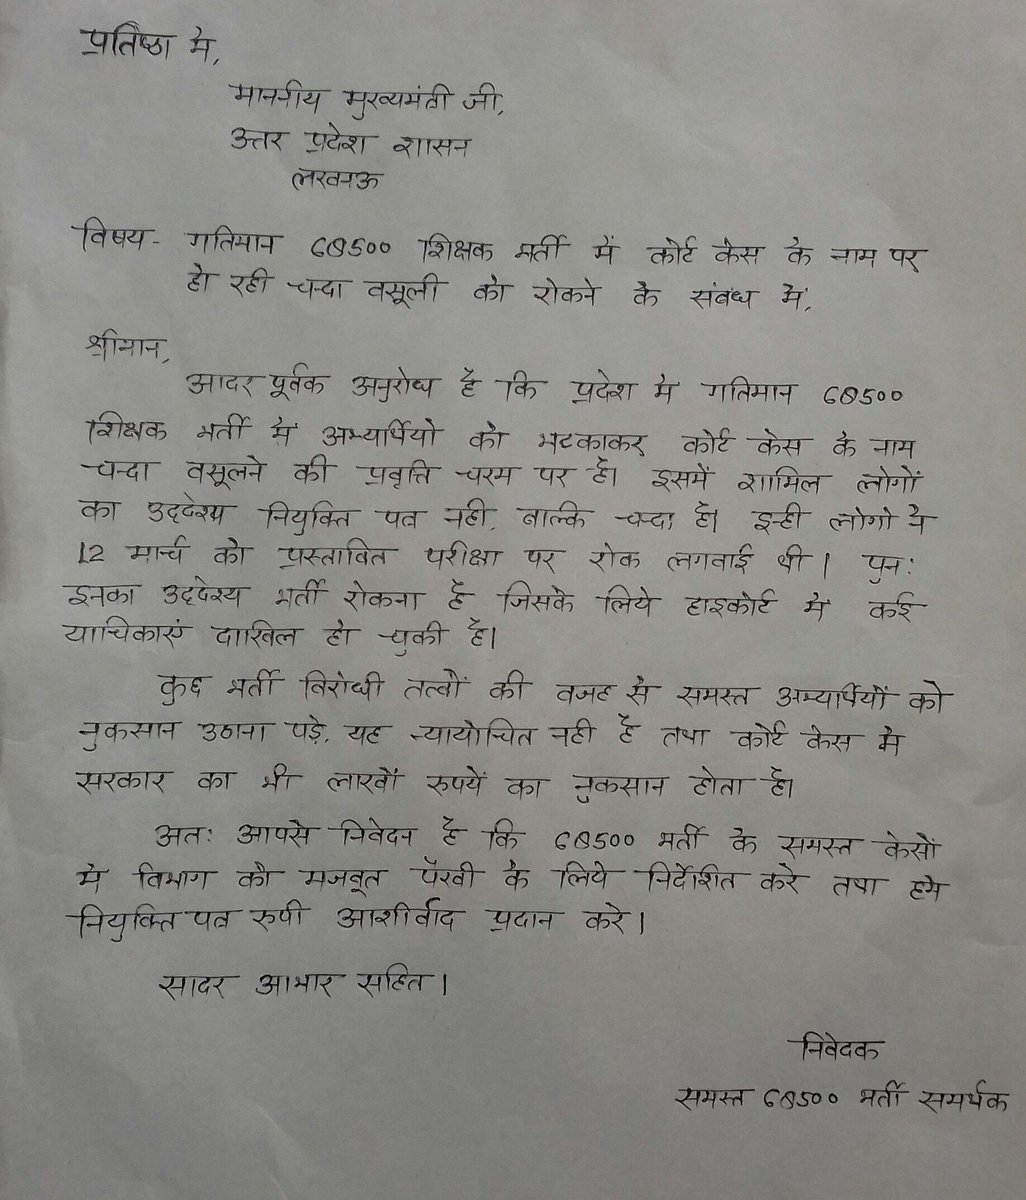 प्रतिष्ठा मे,
माननीय मुख्यमंत्री जी,
उत्तर प्रदेश शासन
लखनऊ
विषय- गतिमान 68500 शिक्षक भर्ती में कोर्ट केस के नाम पर
हो रही चन्दा वसूली को रोकने के संबंध में,
श्रीमान,
आदर पूर्वक अनुरोध है कि प्रदेश मे गतिमान 68500
शिक्षक भर्ती मे अभ्यर्थियो को भटकाकर कोर्ट केस के नाम
चन्दा वसूलने की प्रवृत्ति चरम पर है। इसमें शामिल लोगों
का उद्देश्य नियुक्ति पत्र नही, बल्कि चन्दा है। इन्ही लोगो ने
12 मार्च को प्रस्तावित परीक्षा पर रोक लगवाई थी। पुनः
इनका उद्देश्य भर्ती रोकना है जिसके लिये हाइकोर्ट मे कई
याचिकाएं दाखिल हो चुकी है।
कुछ भर्ती विरोधी तत्वों की वजह से समस्त अभ्यर्थियों को
नुकसान उठाना पड़े, यह न्यायोचित नही है तथा कोर्ट केस मे
सरकार का भी लाखों रुपयें का नुकसान होता है।
अतः आपसे निवेदन है कि 68500 भर्ती के समस्त केसों
मे विभाग को मजबूत पैरवी के लिये निर्देशित करे तथा हमे
नियुक्ति पत्र रुपी आशीर्वाद प्रदान करे।
सादर आभार सहित।
निवेदक
समस्त 68500 भर्ती समर्थक